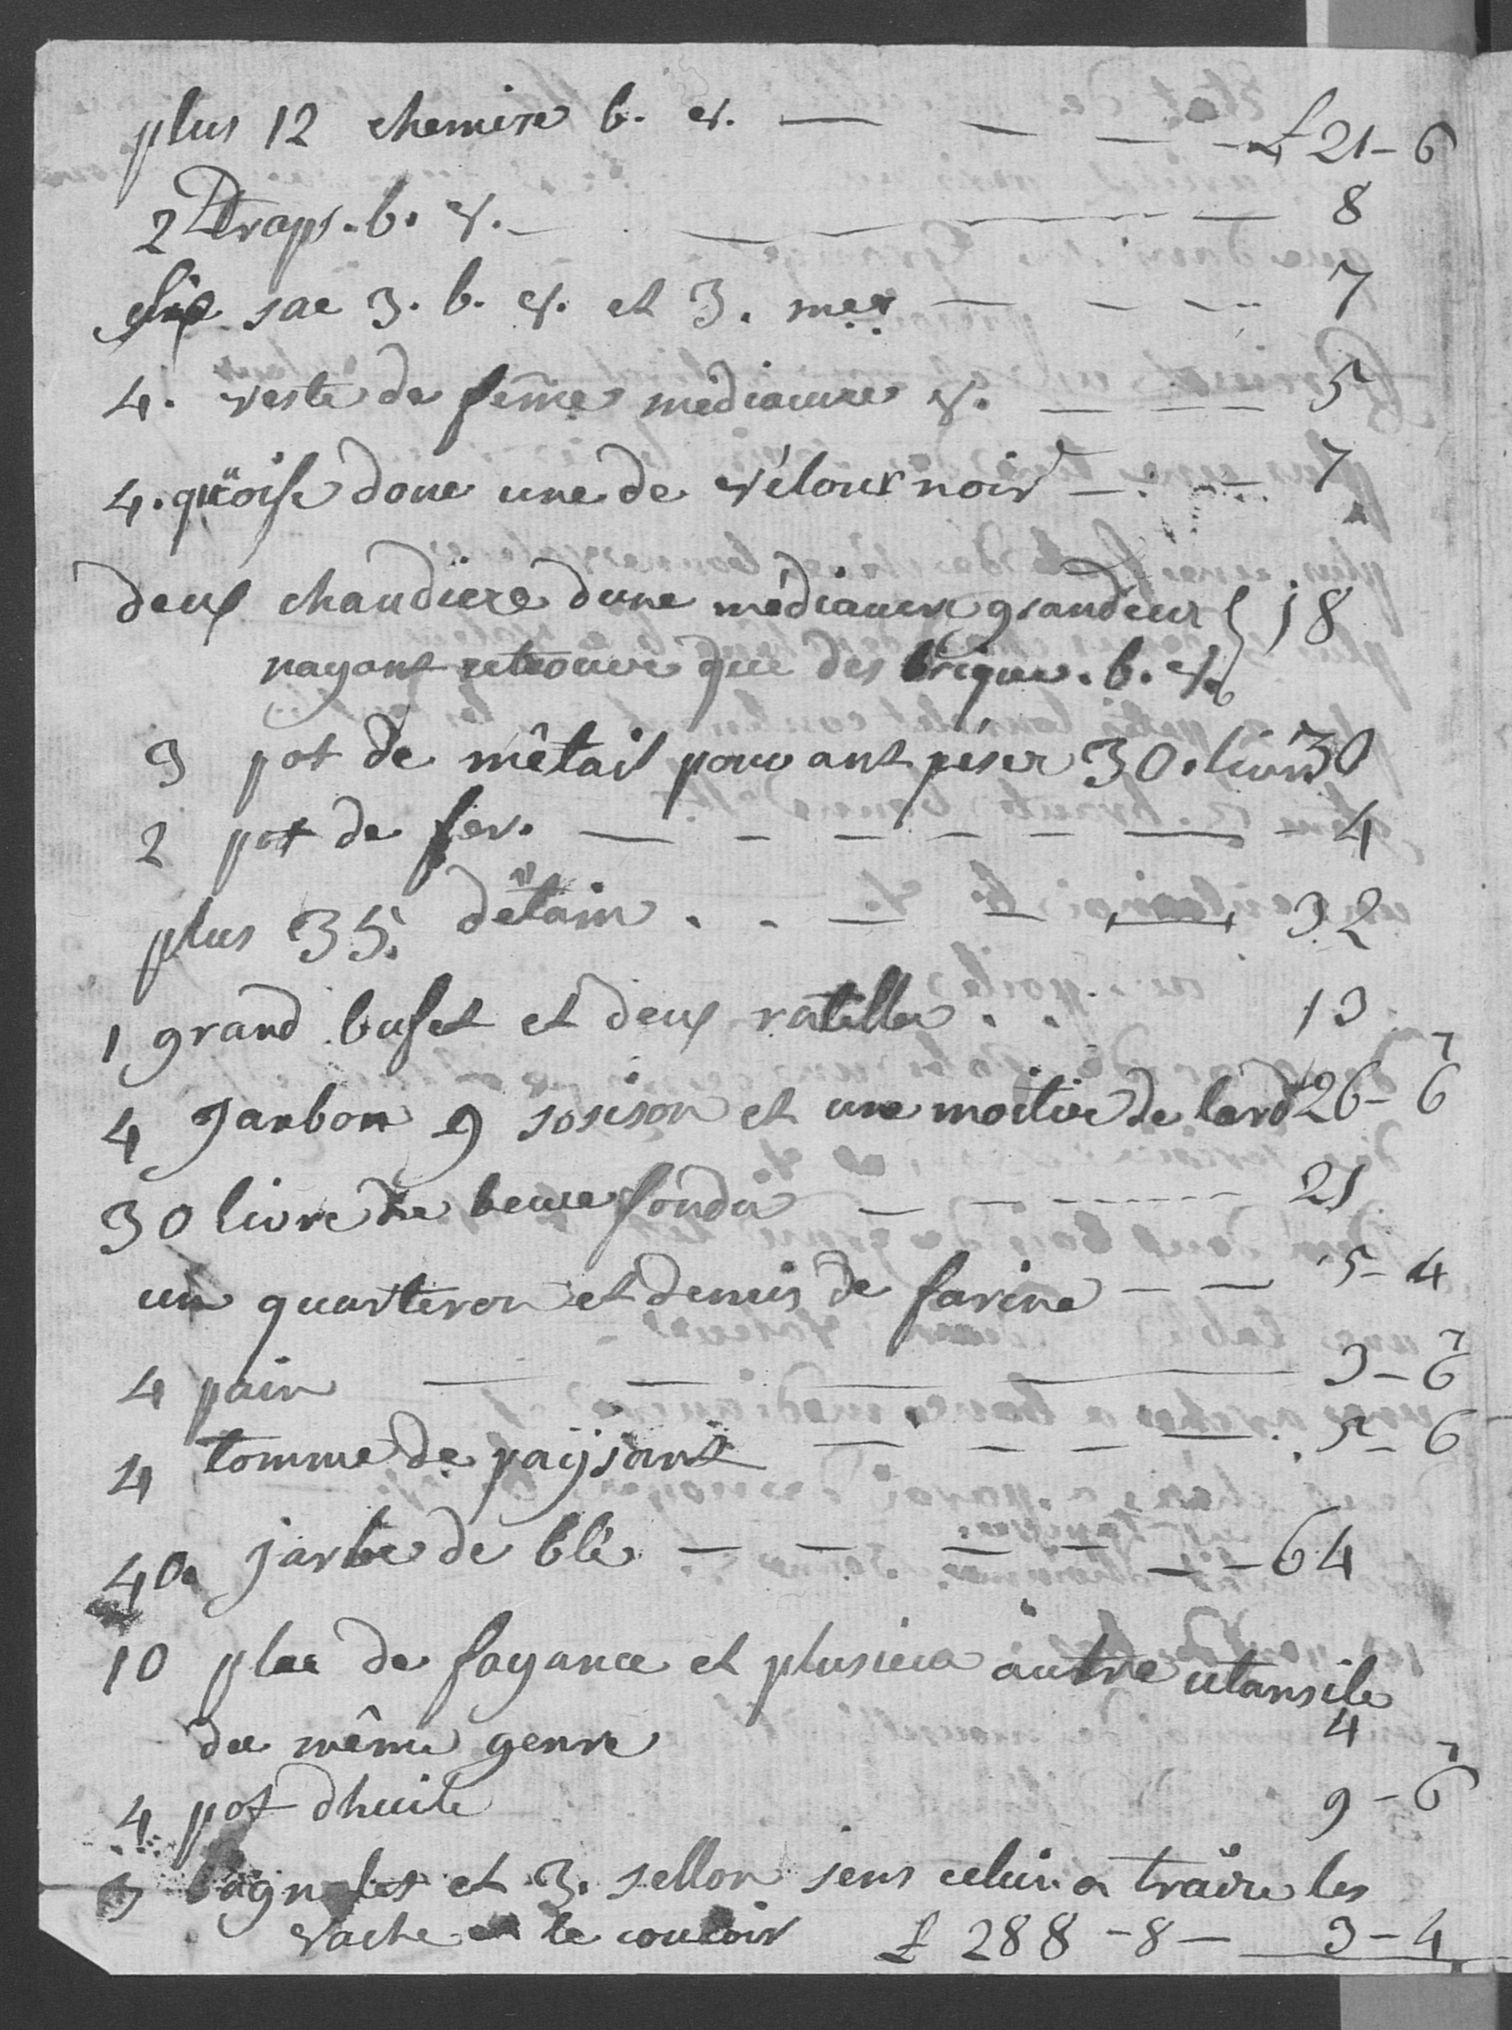 plus 12 chemise b. et. — — — - £ 21-6
2 Draps. b. et. — — — 8
six sac 3. b. et. et 3. mer — — — 7
4. veste de fem̃e mediaucre et. — — — 5
4. qüoife donc une de vélour noir — — 7
deux chaudiere dune médiaucre grandeur } 18
nayant retrouvé que des brique. b. et.
3 pot de métail pouvant péser 30. livre 30
2 pot de fer. — — — — — — 4
plus 35. détain . . — — — 32
1 grand bufet et deux ratille . . 13
4 Janbon 9 sosison et une moitié de lard 26-6
30 livre de beure fondu — — — 21
un quarteron et demis de farine — — 5-4
4 pain — — — — 3-6
4 tomme de païjsant — — — — 5-6
40. jarbe de blé — — — — — 64
10 plac de fayance et plusieur autre utansile
du même genre 4
4 pot dhuile 9-6
3 bagnolet et 3. sellon sens celui a traire les
vache et le couloir £ 288-8 — 3-4